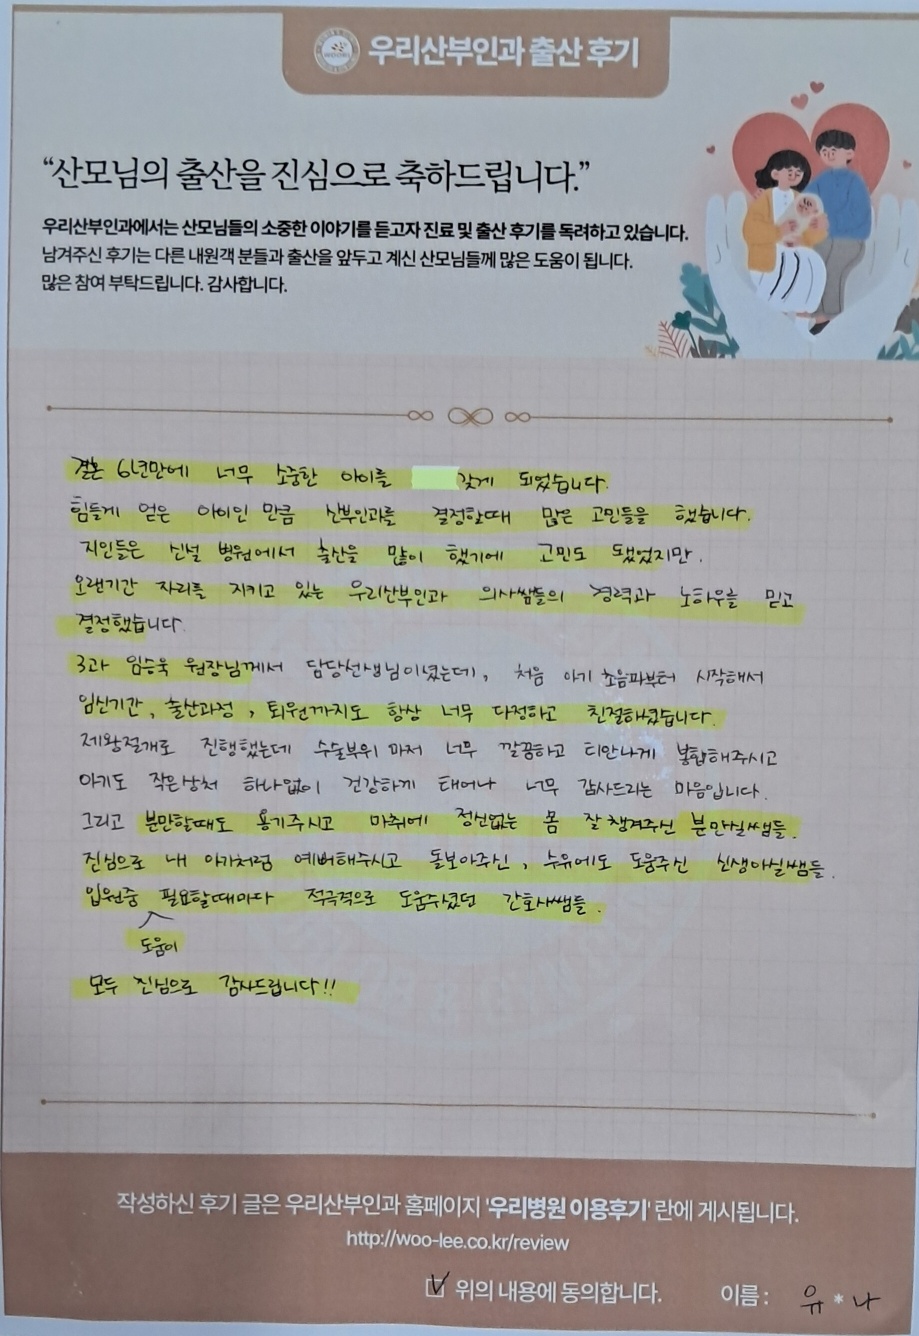 우리산부인과 출산 후기
“산모님의 출산을 진심으로 축하드립니다.”
우리산부인과에서는 산모님들의 소중한 이야기를 듣고자 진료 및 출산 후기를 독려하고 있습니다.
남겨주신 후기는 다른 내원객 분들과 출산을 앞두고 계신 산모님들께 많은 도움이 됩니다.
많은 참여 부탁드립니다. 감사합니다.
결혼 6년만에 너무 소중한 아이를 갖게 되었습니다.
힘들게 얻은 아이인 만큼 산부인과를 결정할때 많은 고민들을 했습니다.
지인들은 신설 병원에서 출산을 많이 했기에 고민도 됐었지만.
오랜기간 자리를 지키고 있는 우리산부인과 의사쌤들의 경력과 노하우를 믿고
결정했습니다.
3과 임승욱 원장님께서 담당선생님이셨는데, 처음 아기 초음파부터 시작해서
임신기간, 출산과정, 퇴원까지도 항상 너무 다정하고 친절하셨습니다.
제왕절개로 진행했는데 수술부위 마저 너무 깔끔하고 티안나게 봉합해주시고
아기도 작은상처 하나없이 건강하게 태어나 너무 감사드리는 마음입니다.
그리고 분만할때도 용기주시고 마취에 정신없는 몸 잘 챙겨주신 분만실쌤들.
진심으로 내 아가처럼 예뻐해주시고 돌보아주신, 수유에도 도움주신 신생아실쌤들.
입원중 필요할때마다 적극적으로 도움주셨던 간호사쌤들.
도움이
모두 진심으로 감사드립니다!!
작성하신 후기 글은 우리산부인과 홈페이지 '우리병원 이용후기' 란에 게시됩니다.
http://woo-lee.co.kr/review
위의 내용에 동의합니다. 이름 : 유*나